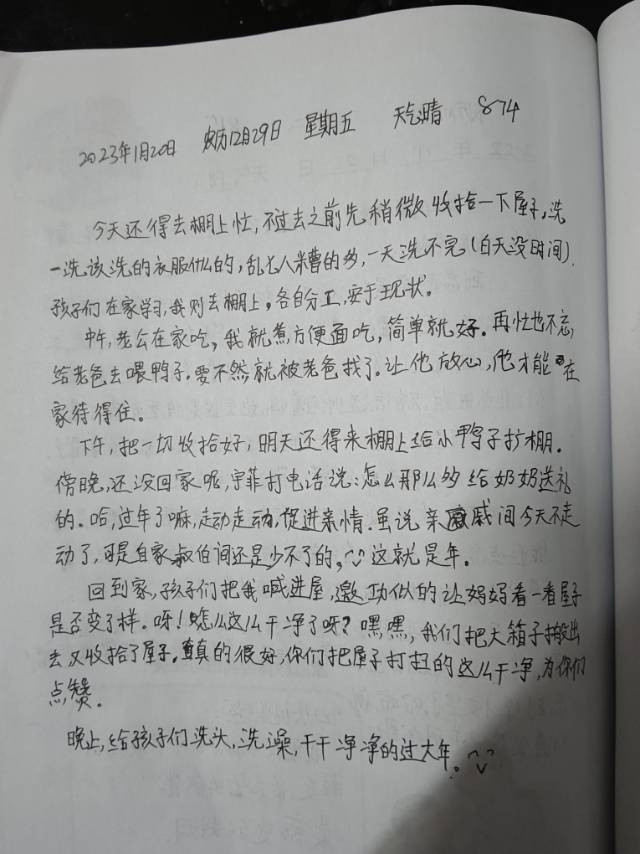 2023年1月20日 农历12月29日 星期五 天气晴 874
今天还得去棚上忙,不过去之前先稍微收拾一下屋子,洗
一洗该洗的衣服什么的,乱七八糟的多,一天洗不完(白天没时间).
孩子们在家学习,我则去棚上,各自分工,安于现状。
中午,老公在家吃,我就煮方便面吃,简单就好.再忙也不忘,
给老爸去喂鸭子.要不然就被老爸找了.让他放心,他才能在
家待得住。
下午,把一切收拾好,明天还得来棚上给小鸭子扩棚.
傍晚,还没回家呢,宇菲打电话说:怎么那么多给奶奶送礼
的.哈,过年了嘛,走动走动,促进亲情.虽说亲戚间今天不走
动了,可是自家叔伯间还是少不了的,这就是年。
回到家,孩子们把我喊进屋,邀功似的让妈妈看一看屋子
是否变了样.呀!怎么这么干净了呀?嘿嘿,我们把大箱子搬出
去又收拾了屋子.真的很好,你们把屋子打扫的这么干净,为你们
点赞。
晚上,给孩子们洗头,洗澡,干干净净的过大年。